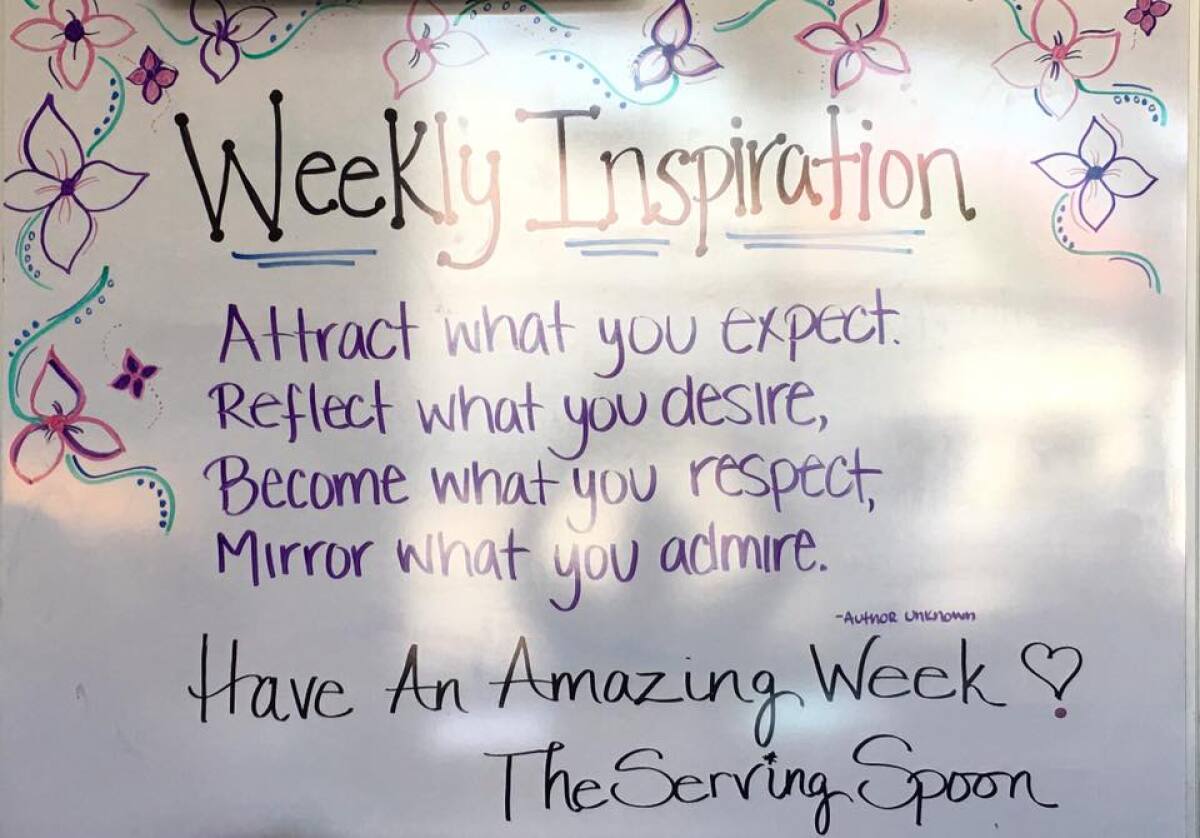 Weekly Inspiration
Attract what you expect.
Reflect what you desire,
Become what you respect,
Mirror what you admire.
-Author Unknown
Have An Amazing Week
The Serving Spoon